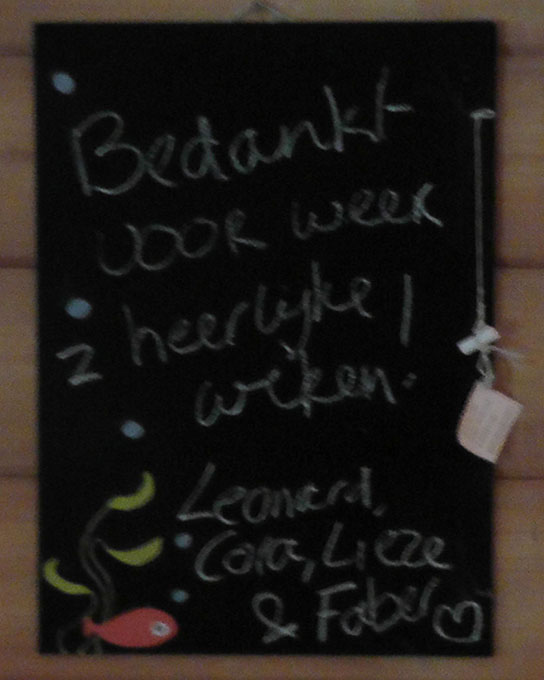 Bedankt
voor week
2 heerlijke
weken!
Leonard,
Cora, Lieze
& Faber